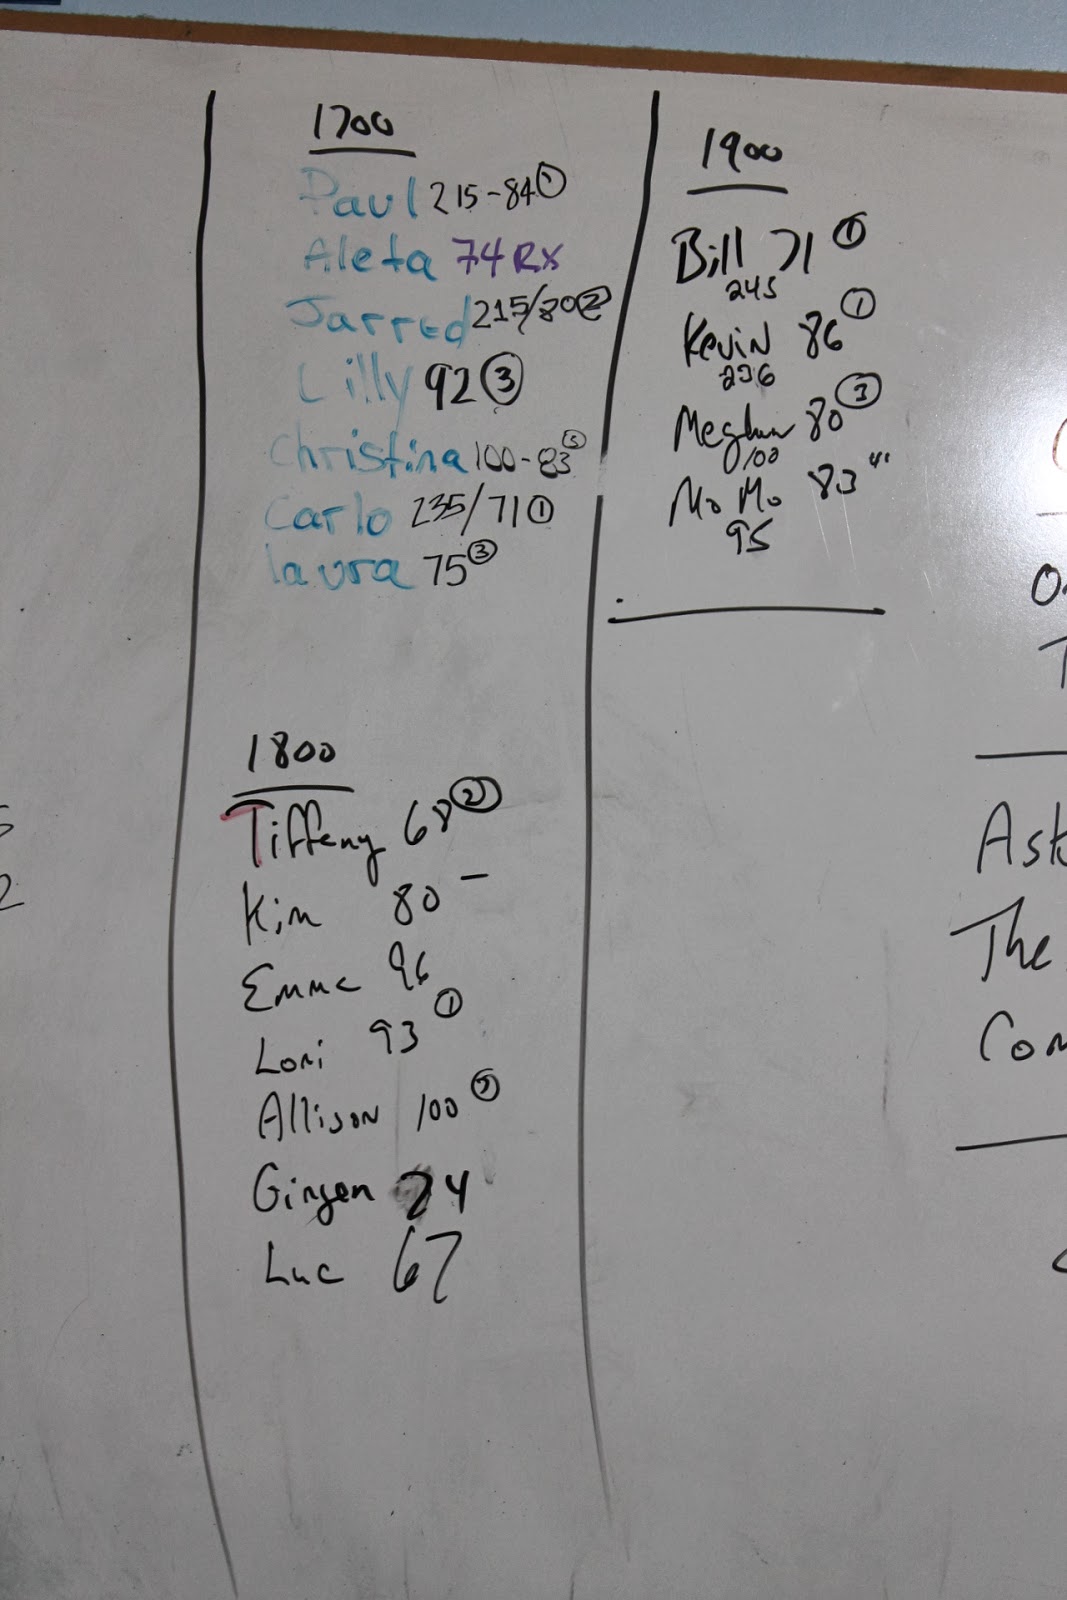 1700
Paul 215-84 ①
Aleta 74 RX
Jarred 215/80 ②
Lilly 92 ③
Christina 100-83 ③
Carlo 235/71 ①
Laura 75 ③
1800
Tiffany 68 ②
Kim 80 -
Emma 96
Lori 93 ①
Allison 100 ③
Ginger 74
Luc 67
1900
Bill 71 ①
245
Kevin 86 ①
236
Meghan 80 ③
100
Mo Mo 83
95
The